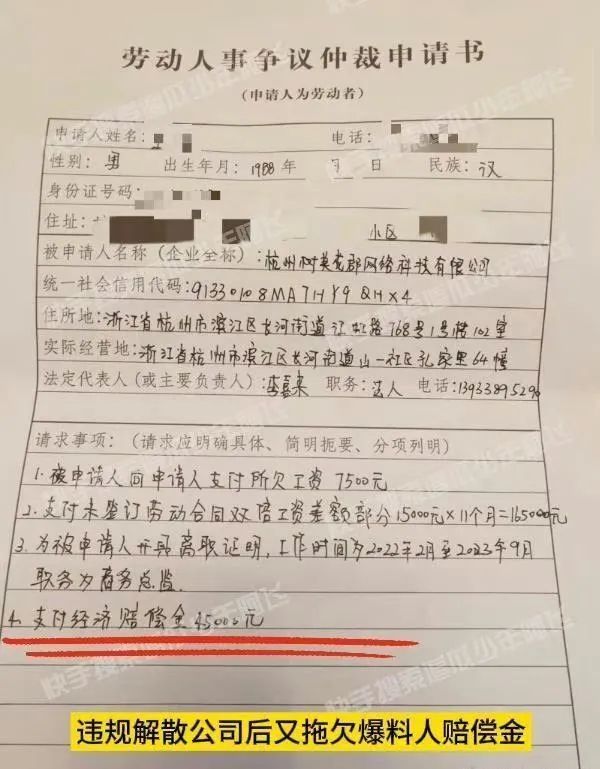 劳动人事争议仲裁申请书
(申请人为劳动者)
申请人姓名: 电话:
性别: 男 出生年月: 1988年 月 日 民族: 汉
身份证号码:
住址: 小区
被申请人名称(企业全称): 杭州树英戈郡网络科技有限公司
统一社会信用代码: 91330108MA7HY9QHX4
住所地: 浙江省杭州市滨江区长河街道江虹路768号1号楼102室
实际经营地: 浙江省杭州市滨江区长河街道山一社区孔家里64幢
法定代表人(或主要负责人): 李嘉来 职务: 法人 电话:
请求事项: (请求应明确具体、简明扼要、分项列明)
1. 被申请人向申请人支付所欠工资7500元
2. 支付未签订劳动合同双倍工资差额部分15000元×11个月=165000元
3. 为被申请人开具离职证明,工作时间为2022年2月至2023年9月
职务为商务总监.
4. 支付经济赔偿金45000元
违规解散公司后又拖欠爆料人赔偿金